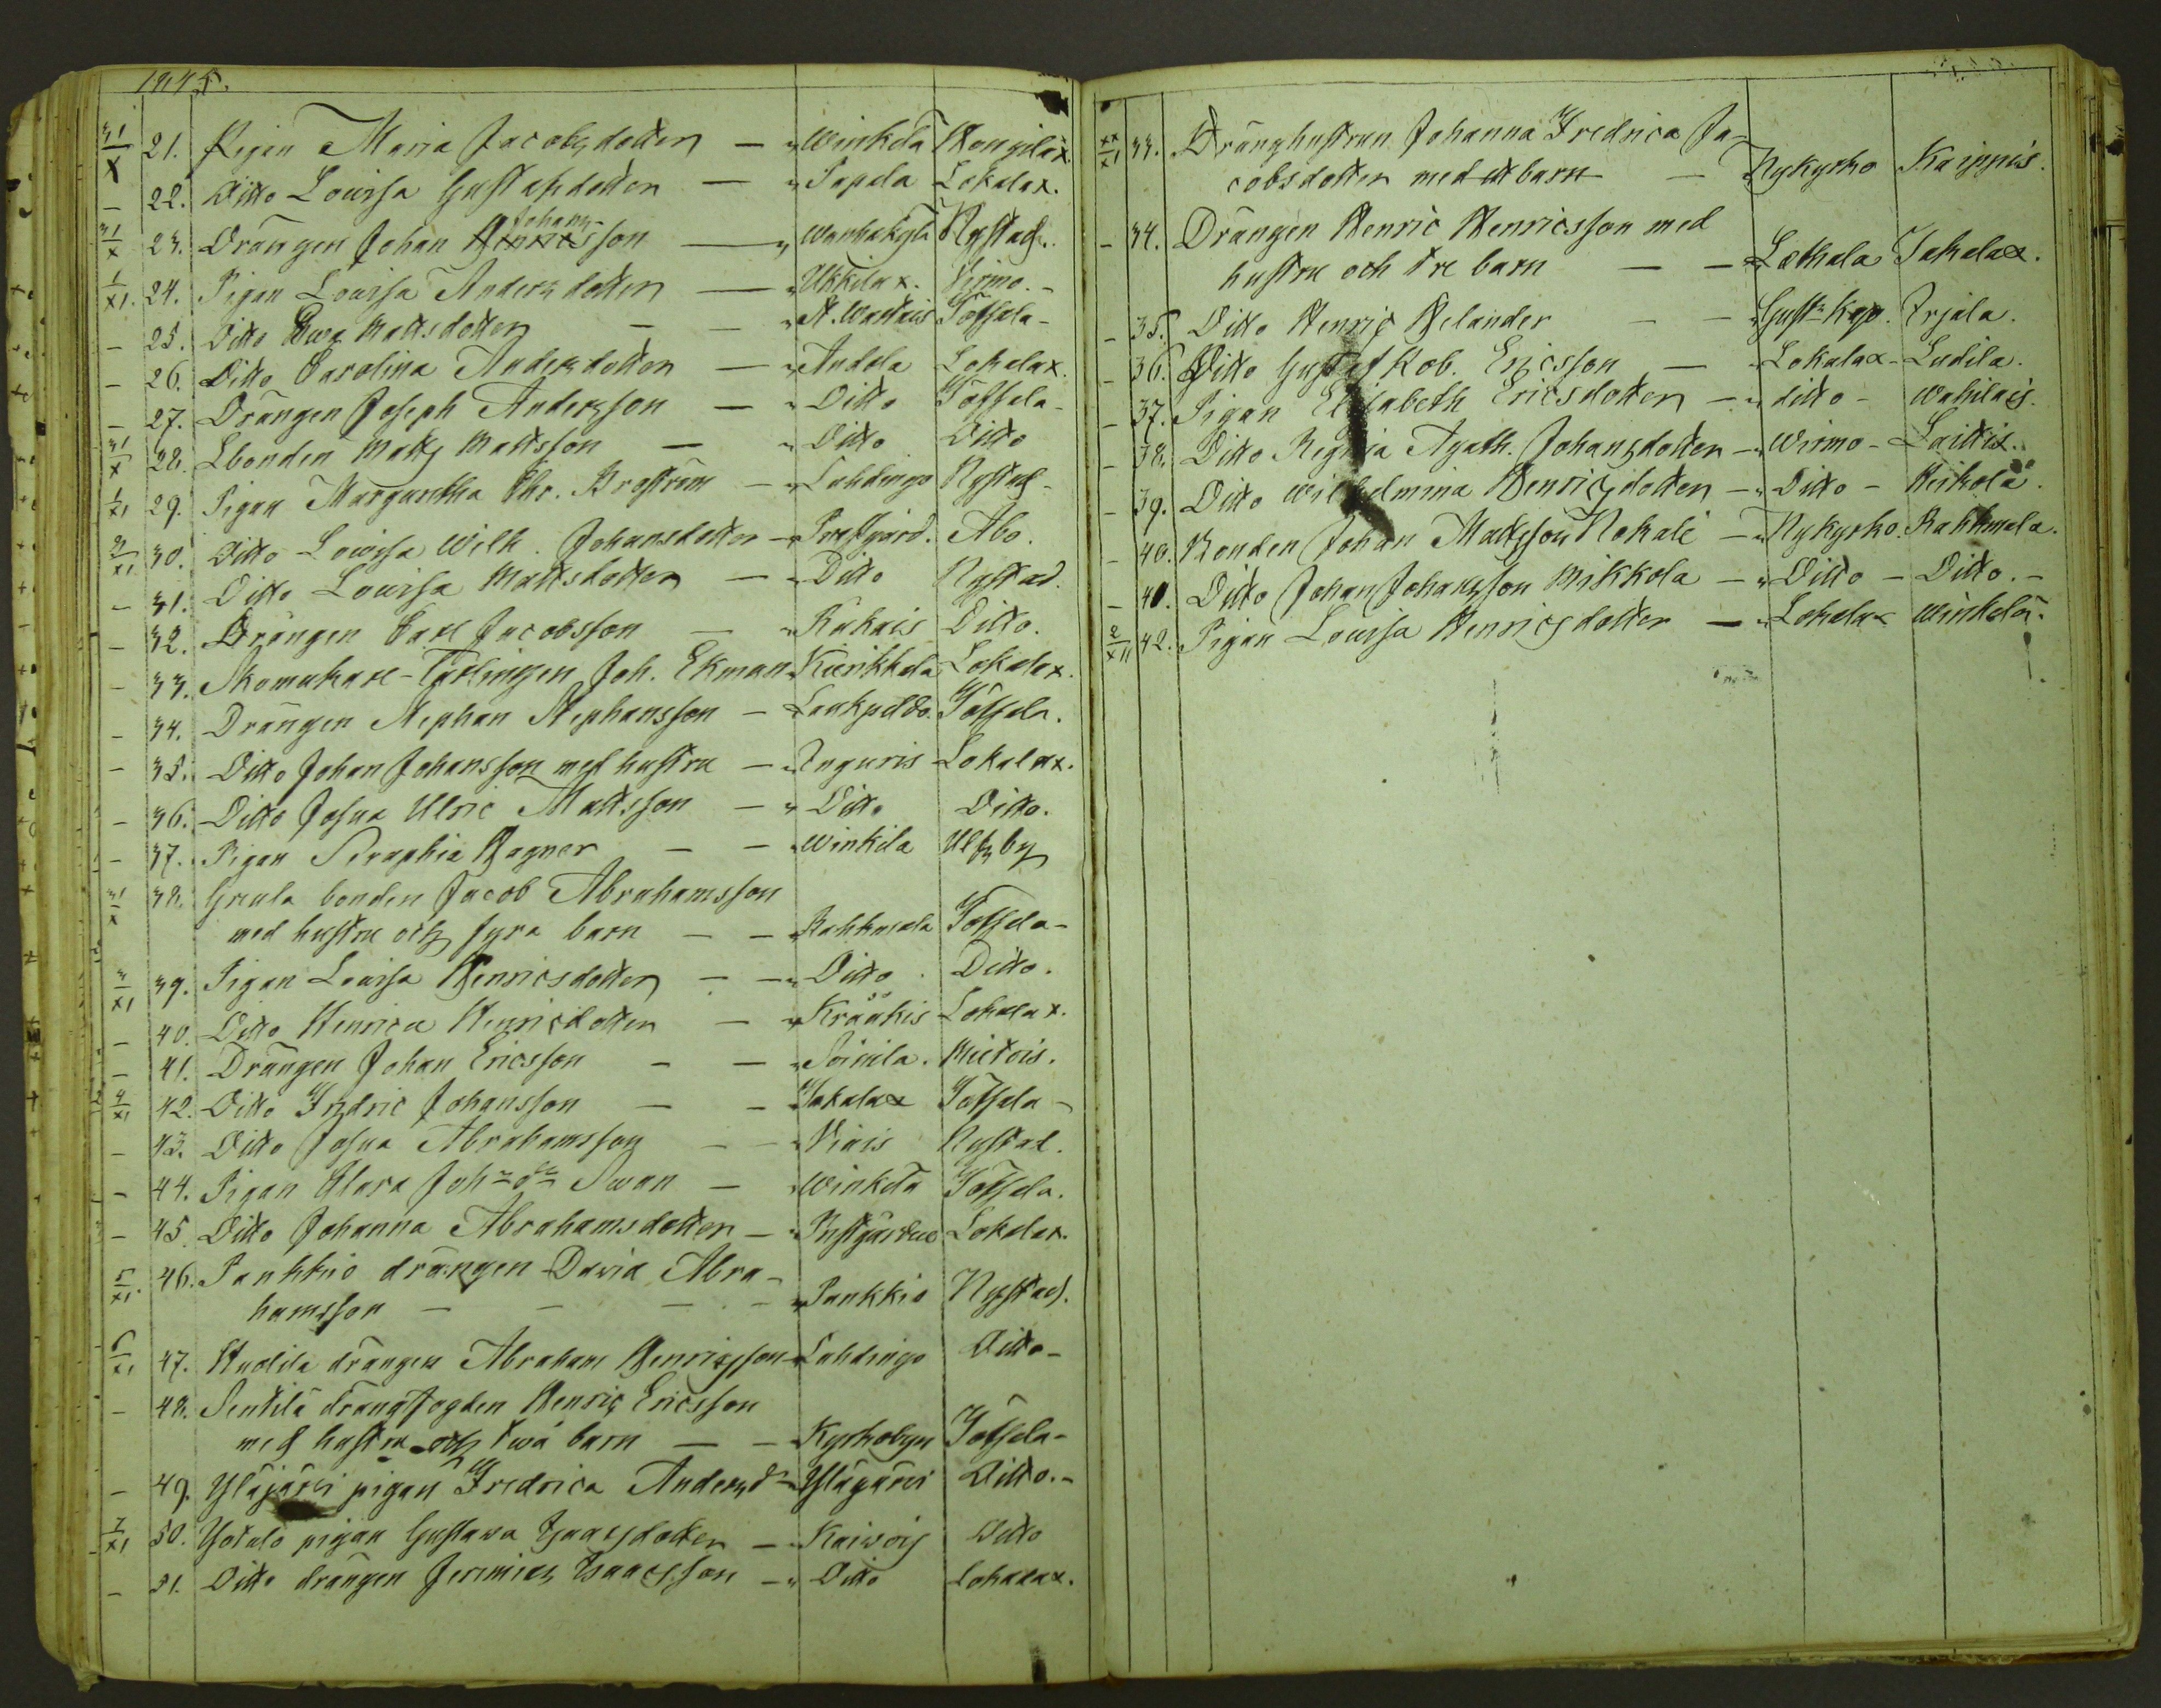 1845.
31/X 21. Pigan Maria Jacobsdotter — " Winkelä
– 22. Ditto Lowisa Gustafsdotter — " Papela Lokalax.
31/X 23. Drängen Johan Johansson — " Wanhakylä Nystad.
1/XI. 24. Pigan Lowisa Andersdotter — " Ukkilax. Virmo. –
– 25. Ditto Ewa Mattsdotter — — " Töfsala –
– 26. Ditto Carolina Andersdotter — " Andela Lokalax.
– 27. Drängen Joseph Andersson — " Ditto Töfsala –
31/X 28. Ebonden Matts Mattsson — " Ditto Ditto
1/XI 29. Pigan Margaretha Chr. Broström — " Lahdingo Nystad –
2/XI 30. Ditto Lowisa Wilh. Johansdotter — Prestgård. Åbo.
– 31. Ditto Lowisa Mattsdotter — " Ditto Nystad.
– 32. Drängen Carl Jacobsson — " Kukais Ditto.
– 33. Skomakare-Lärlingen Joh. Ekman " Kierikkala Lokalax.
– 34. Drängen Stephan Stephansson — Laukpeldo. Töfsala.
– 35. Ditto Johan Johansson med hustru — " Anguris Lokalax.
– 36. Ditto Josua Ulric Mattsson — " Ditto Ditto.
– 37. Pigan Seraphia Wagner — — " Winkila Ulfsby
31/X 38. Greula bonden Jacob Abrahamsson
med hustru och fyra barn — — " Rahkmala Töfsala –
3/XI 39. Pigan Lowisa Henricsdotter — — " Ditto. Ditto.
– 40. Ditto Henrica Henricsdotter — " Krääkis Lokalax.
– 41. Drängen Johan Ericsson — — " Soinila. Mietois.
4/XI 42. Ditto Fredric Johansson — — Jakalax Töfsala –
– 43. Ditto Josua Abrahamsson — — " Viais Nystad.
– 44. Pigan Clara Joh:s dr Swan — " Winkelä Töfsala.
– 45. Ditto Johanna Abrahamsdotter — " Prestgården Lokalax.
5/XI. 46. Pankkio drängen David Abra-
hamsson — — — — " Pankkio Nystad.
6/XI 47. Hudila drängen Abraham Henricsson — Lahdingo Ditto –
– 48. Sentilä drängfogden Henric Ericsson
med hustru och två barn — — Kyrkobyn Töfsala –
– 49. Yläjärvi pigan Fredrica Andersdr — Yläjärvi Ditto. –
7/XI 50. Yötalo pigan Gustava Isaacsdotter — " Kaivois Ditto
– 51. Ditto drängen Jeremias Isaacsson — " Ditto Lokalax.
XI 33. Dränghustrun Johanna Fredrica Ja-
cobsdotter med ett barn — Nykyrko Kaippis.
– 34. Drängen Henric Henricsson med
hustru och tre barn — — " Lethala Jakalax.
– 35. Ditto Henric Helander — — " Gust:s Kap. Arjala.
– 36. Ditto Gustaf Rob. Ericsson — " Lokalax – Ladila.
– 37. Pigan Elisabeth Ericsdotter — " ditto – Wahilais.
– 38. Ditto Regina Agath. Johansdotter — " Wirmo – Laittis.
– 39. Ditto Wilhelmina Henricsdotter — " Ditto – Heikolä.
– 40. Bonden Johan Mattsson Nokali — " Nykyrko. Rahkmala.
– 41. Ditto Johan Johansson Mikkola — " Ditto – Ditto. –
2/XII 42. Pigan Lowisa Henricsdotter — " Lokalax Winkelä.